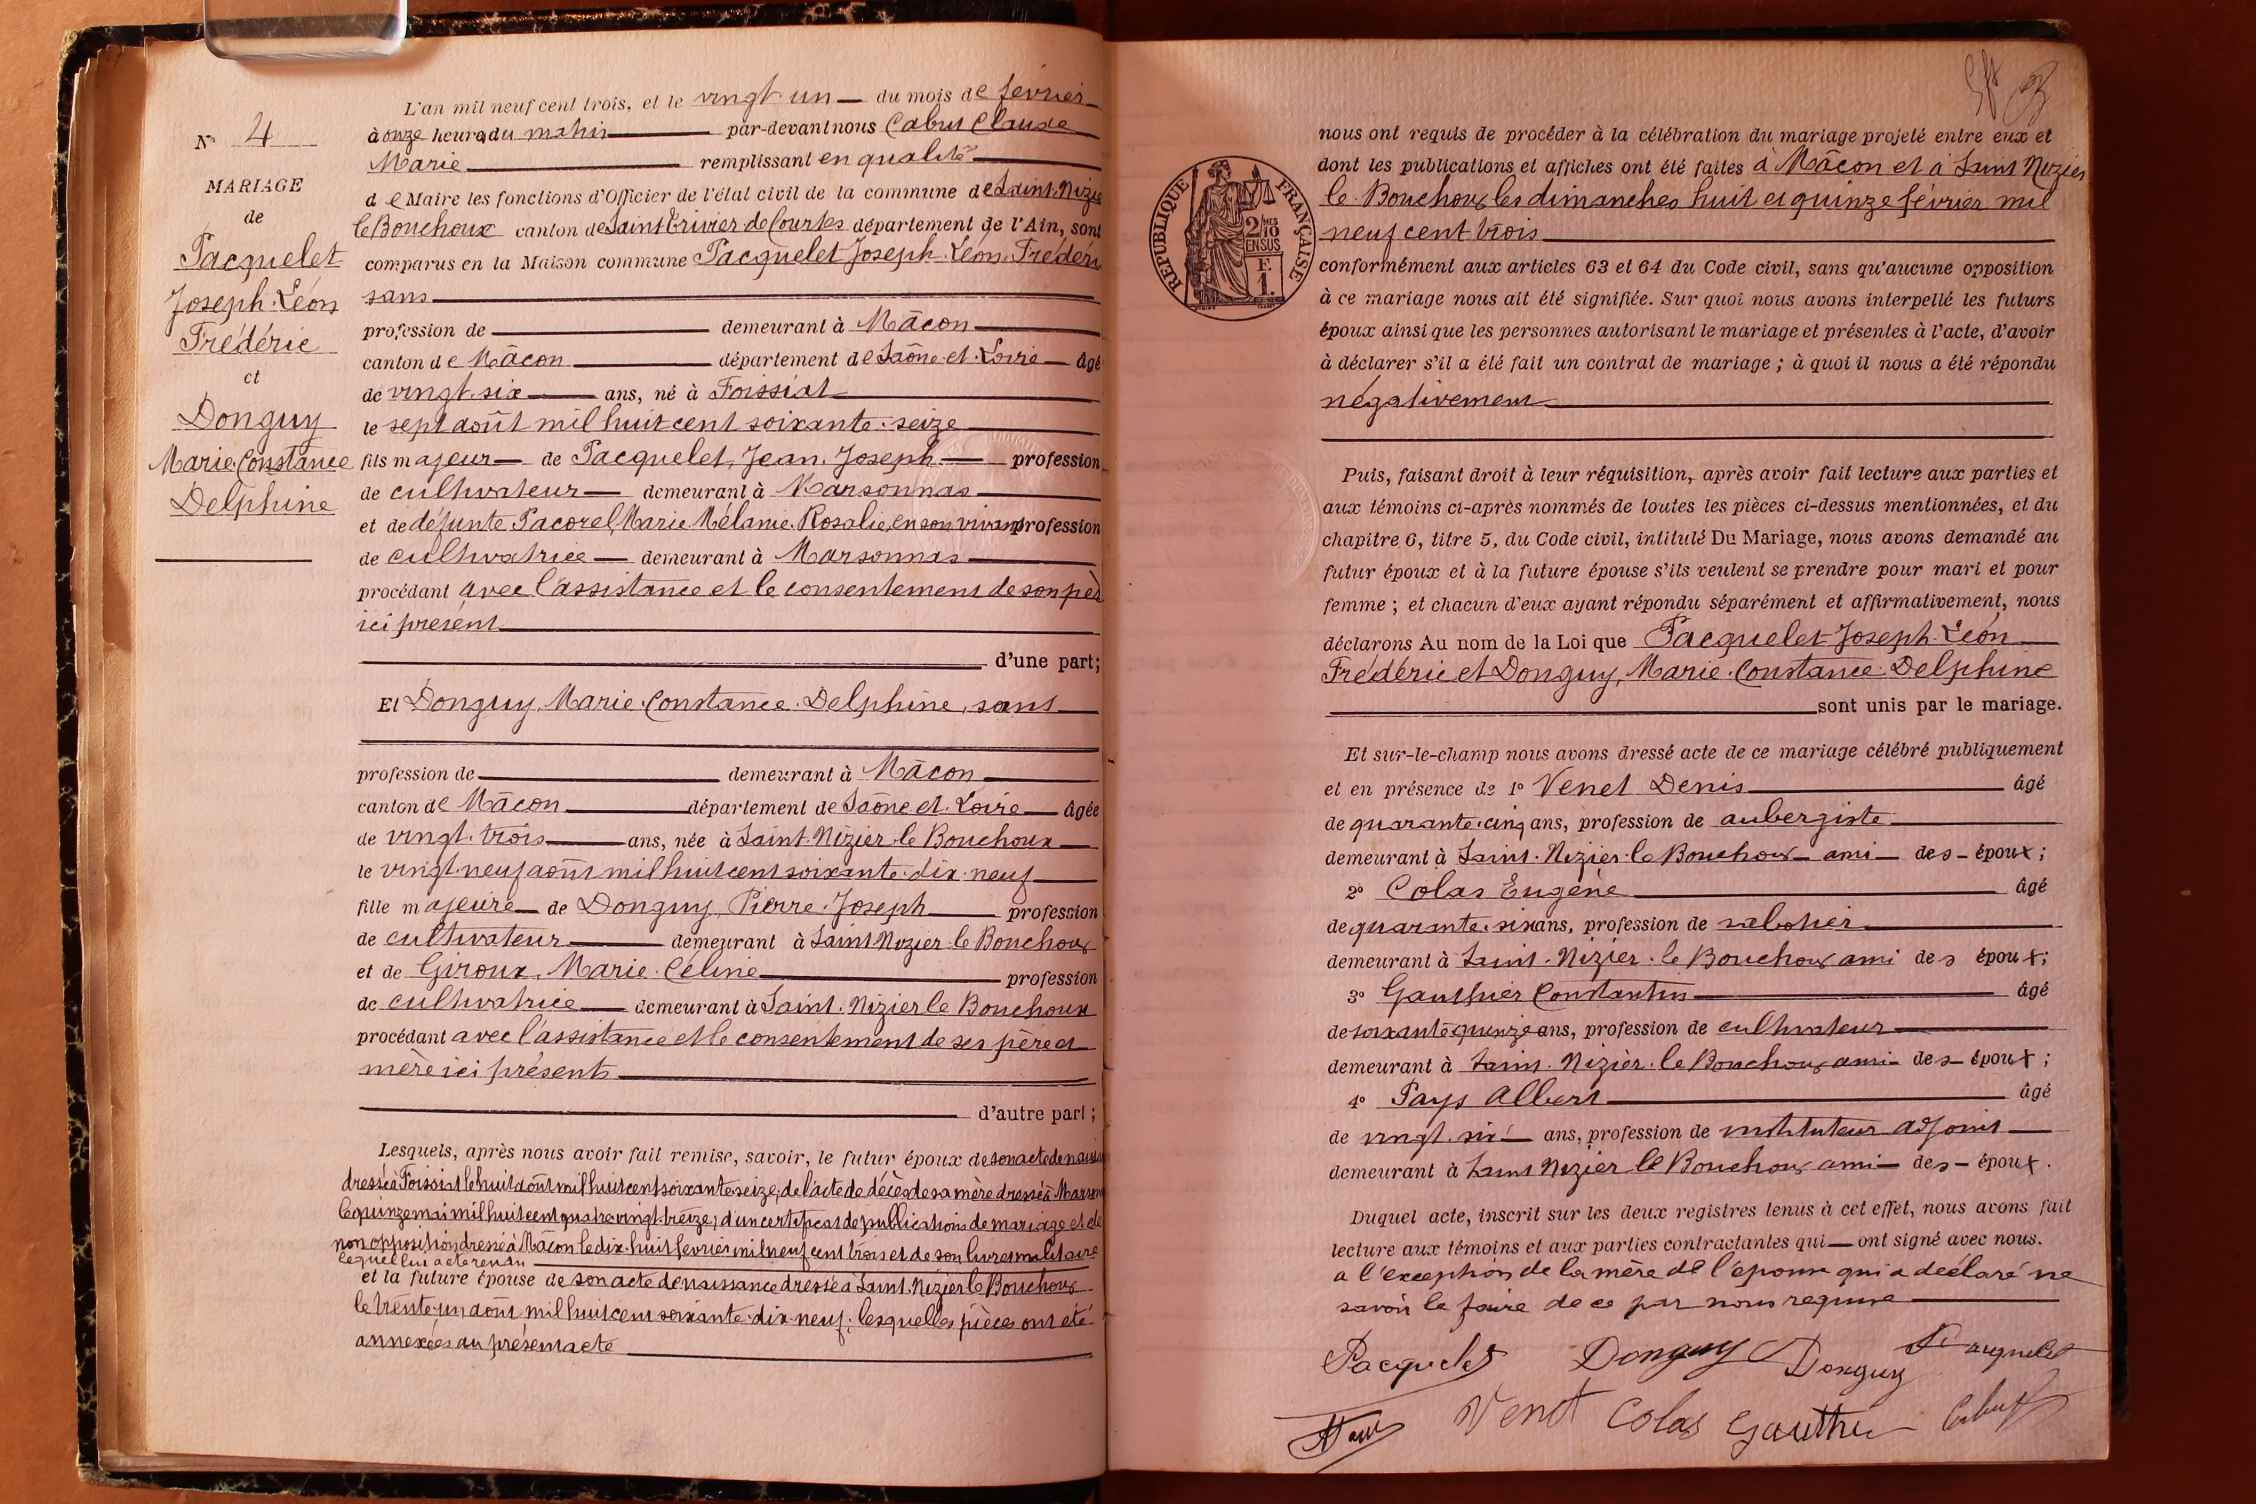 L'an mil neuf cent trois, et le vingt-un du mois de février
à onze heures du matin par-devant nous Cabut Claude
Marie remplissant en qualité
de Maire les fonctions d'Officier de l'état civil de la commune de Saint-Nizier
le Bouchoux canton de Saint Trivier de Courtes département de l'Ain, sont
comparus en la Maison commune Pacquelet Joseph-Léon-Frédéri
sans
profession de demeurant à Mâcon
canton de Mâcon département de Saône-et-Loire âgé
de vingt-six ans, né à Foissiat
le sept août mil huit cent soixante-seize
fils majeur de Pacquelet, Jean-Joseph profession
de cultivateur demeurant à Marsonnas
et de défunte Pacorel, Marie-Mélanie-Rosalie, en son vivant profession
de cultivatrice demeurant à Marsonnas
procédant avec l'assistance et le consentement de son pèr
ici présent
d'une part;
Et Donguy, Marie-Constance-Delphine, sans
profession de demeurant à Mâcon
canton de Mâcon département de Saône et Loire âgée
de vingt-trois ans, née à Saint-Nizier-le Bouchoux
le vingt-neuf août mil huit cent soixante-dix-neuf
fille majeure de Donguy, Pierre-Joseph profession
de cultivateur demeurant à Saint Nizier-le Bouchoux
et de Giroux, Marie-Céline profession
de cultivatrice demeurant à Saint-Nizier le Bouchoux
procédant avec l'assistance et le consentement de ses père et
mère ici présents
d'autre part;
Lesquels, après nous avoir fait remise, savoir, le futur époux de son acte de naissa
dressé à Foissiat le huit août mil huit cent soixante seize; de l'acte de décès de sa mère dressé à Marson
le quinze mai mil huit cent quatre vingt-treize; d'un certificat de publications de mariage et de
non opposition dressé à Mâcon le dix-huit février mil neuf cent trois et de son livret militaire
lequel lui a été rendu
et la future épouse de son acte de naissance dressé à Saint-Nizier le Bouchoux
le trente-un août mil huit cent soixante-dix-neuf; lesquelles pièces ont été
annexées au présent acte
N° 4
MARIAGE
de
Pacquelet
Joseph-Léon
Frédéric
et
Donguy
Marie-Constance
Delphine
RÉPUBLIQUE FRANÇAISE
2/10
EN SUS
F.
1.
nous ont requis de procéder à la célébration du mariage projeté entre eux et
dont les publications et affiches ont été faites à Mâcon et à Saint Nizier
le Bouchoux les dimanches huit et quinze février mil
neuf cent trois
conformément aux articles 63 et 64 du Code civil, sans qu'aucune opposition
à ce mariage nous ait été signifiée. Sur quoi nous avons interpellé les futurs
époux ainsi que les personnes autorisant le mariage et présentes à l'acte, d'avoir
à déclarer s'il a été fait un contrat de mariage; à quoi il nous a été répondu
négativement
Puis, faisant droit à leur réquisition, après avoir fait lecture aux parties et
aux témoins ci-après nommés de toutes les pièces ci-dessus mentionnées, et du
chapitre 6, titre 5, du Code civil, intitulé Du Mariage, nous avons demandé au
futur époux et à la future épouse s'ils veulent se prendre pour mari et pour
femme; et chacun d'eux ayant répondu séparément et affirmativement, nous
déclarons Au nom de la Loi que Pacquelet Joseph-Léon
Frédéric et Donguy, Marie-Constance-Delphine
sont unis par le mariage.
Et sur-le-champ nous avons dressé acte de ce mariage célébré publiquement
et en présence de 1° Venet Denis âgé
de quarante-cinq ans, profession de aubergiste
demeurant à Saint-Nizier-le Bouchoux ami des époux;
2° Colas Eugène âgé
de quarante-six ans, profession de sabotier
demeurant à Saint-Nizier-le Bouchoux ami des époux;
3° Gauthier Constantin âgé
de soixante quinze ans, profession de cultivateur
demeurant à Saint-Nizier-le Bouchoux ami des époux;
4° Pays Albert âgé
de vingt-six ans, profession de instituteur adjoint
demeurant à Saint Nizier le Bouchoux ami des époux.
Duquel acte, inscrit sur les deux registres tenus à cet effet, nous avons fait
lecture aux témoins et aux parties contractantes qui ont signé avec nous.
a l'exception de la mère de l'épouse qui a déclaré ne
savoir le faire de ce par nous requise
Pacquelet Donguy Donguy Pacquelet
Venet Colas Gauthier Cabut